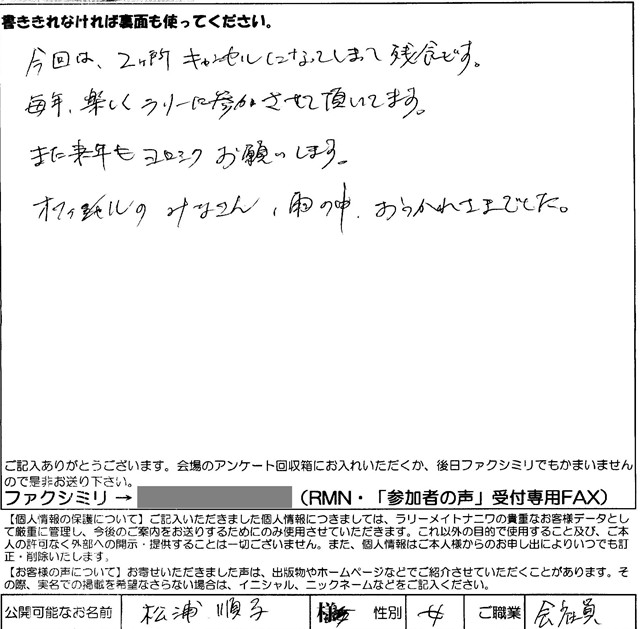 書ききれなければ裏面も使ってください。
今回は、2ヶ所キャンセルになってしまって残念です。
毎年、楽しくラリーに参加させて頂いてます。
また来年もヨロシクお願いします。
オフィシャルのみなさん、雨の中、おつかれさまでした。
ご記入ありがとうございます。会場のアンケート回収箱にお入れいただくか、後日ファクシミリでもかまいません
ので是非お送り下さい。
ファクシミリ → (RMN・「参加者の声」受付専用FAX)
【個人情報の保護について】ご記入いただきました個人情報につきましては、ラリーメイトナニワの貴重なお客様データとし
て厳重に管理し、今後のご案内をお送りするためにのみ使用させていただきます。これ以外の目的で使用すること及び、ご本
人の許可なく外部への開示・提供することは一切ございません。また、個人情報はご本人様からのお申し出によりいつでも訂
正・削除いたします。
【お客様の声について】お寄せいただきました声は、出版物やホームページなどでご紹介させていただくことがあります。そ
の際、実名での掲載を希望なさらない場合は、イニシャル、ニックネームなどをご記入ください。
公開可能なお名前 松浦 順子 様 性別 女 ご職業 会社員